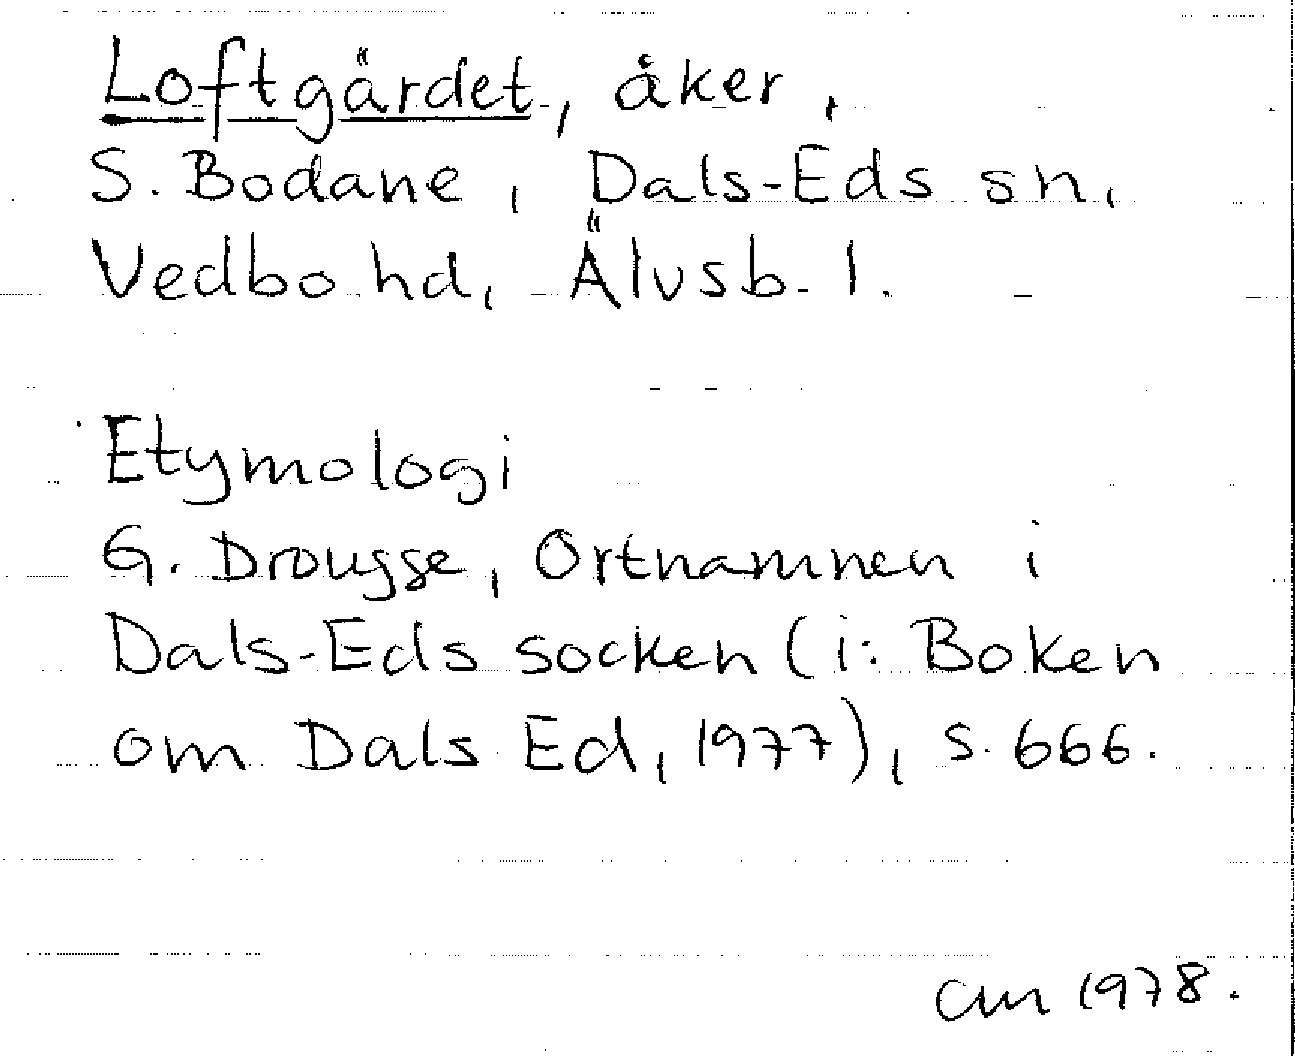 Loftgärdet, åker,
S. Bodane, Dals-Eds sn,
Vedbo hd, Älvsb. l.
Etymologi
G. Drougge, Ortnamnen i
Dals-Eds socken (i: Boken
om Dals Ed, 1977), s. 666.
1978.